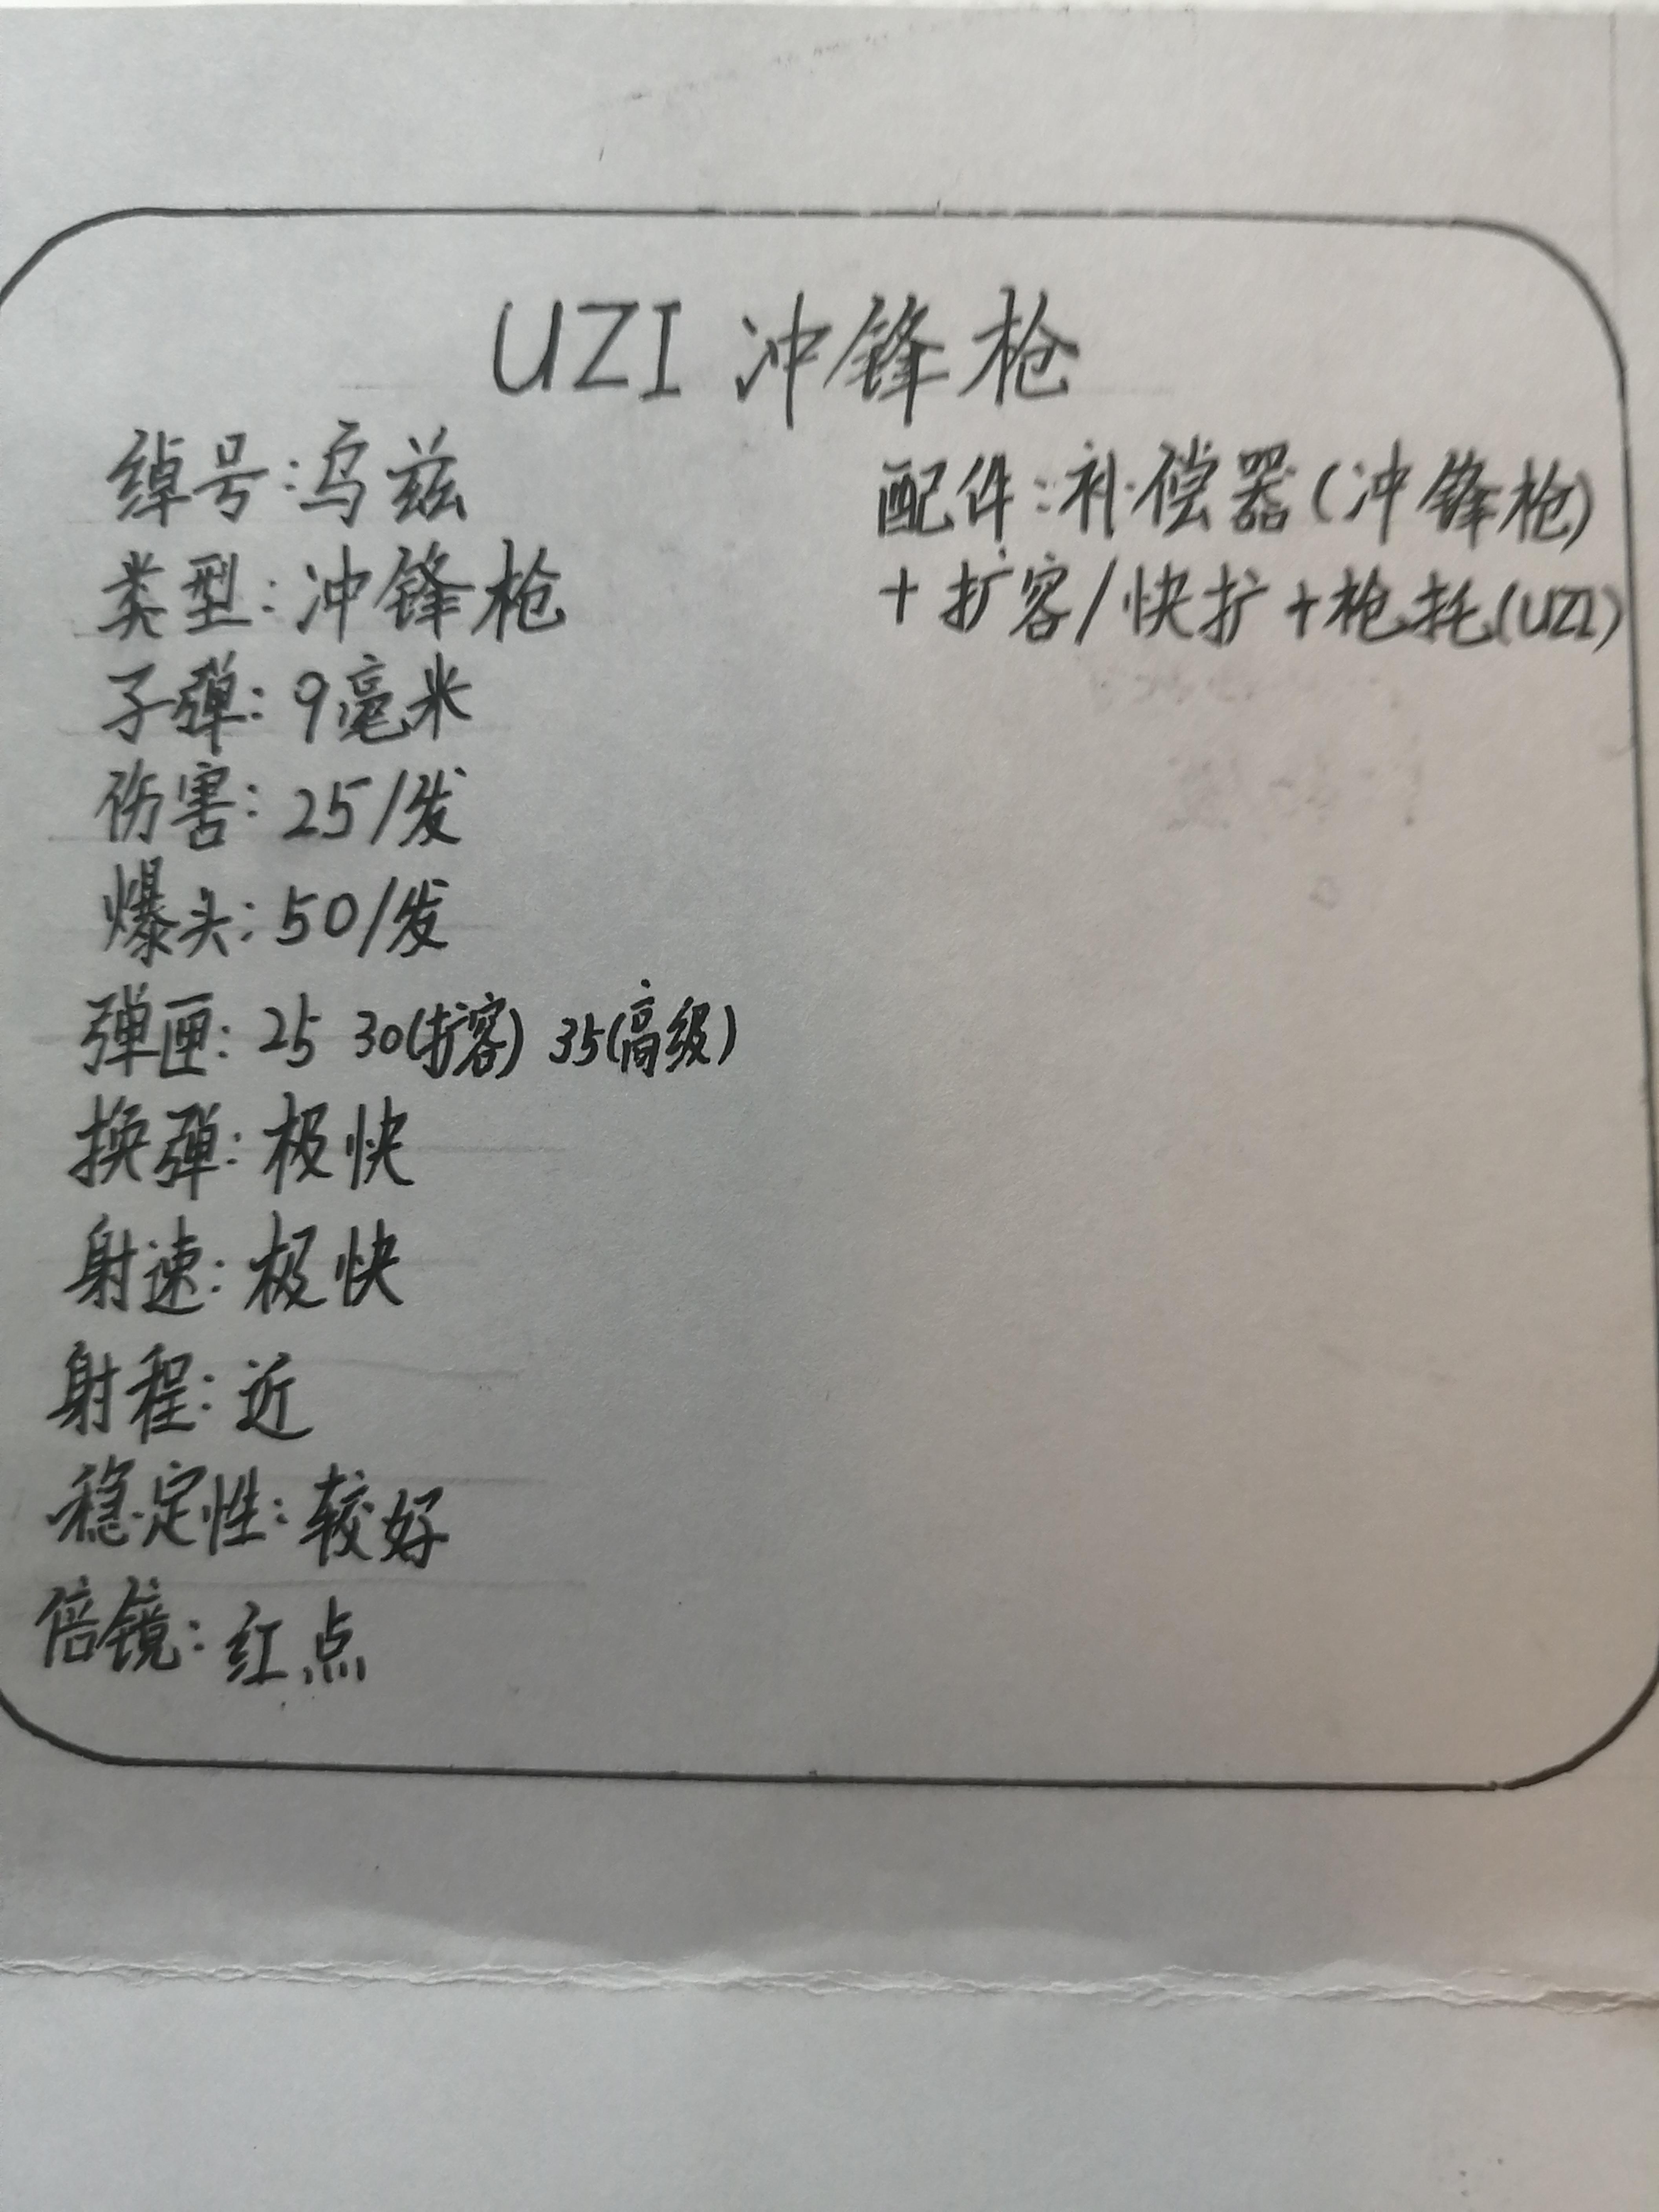 UZI 冲锋枪
绰号:乌兹
类型:冲锋枪
子弹:9毫米
伤害:25/发
爆头:50/发
弹匣:25 30(扩容) 35(高级)
换弹:极快
射速:极快
射程:近
稳定性:较好
倍镜:红点
配件:补偿器(冲锋枪)
+扩容/快扩+枪托(UZI)